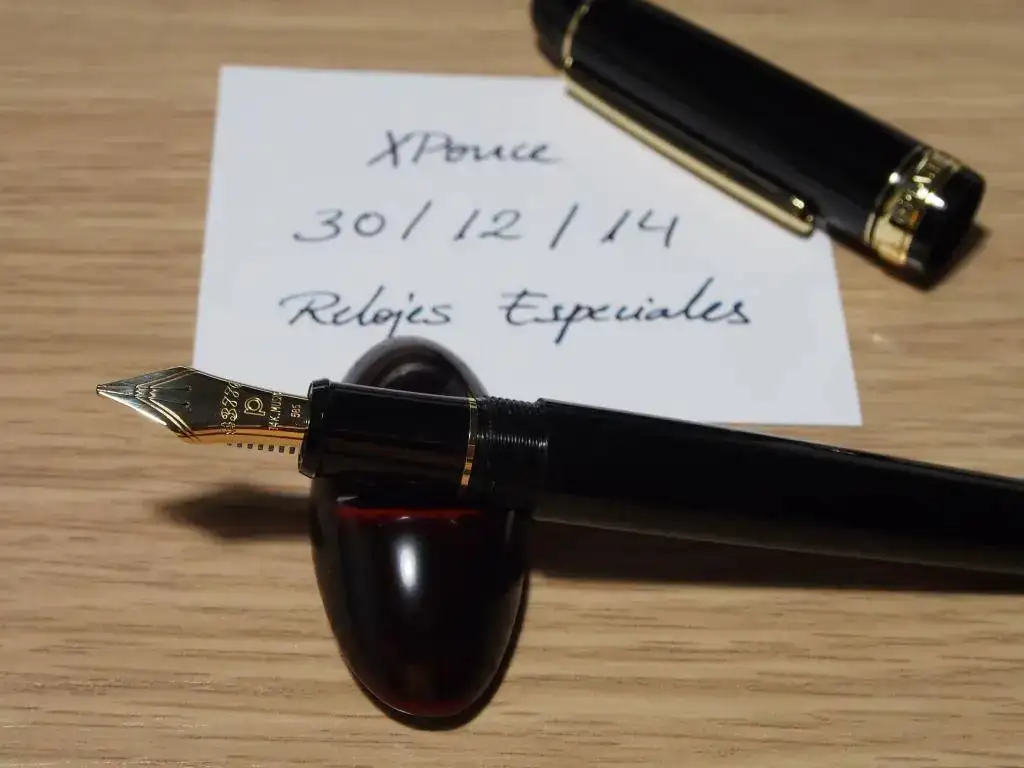 XPonce
30/12/14
Relojes Especiales
#3776
P
14K. MUSIC
585